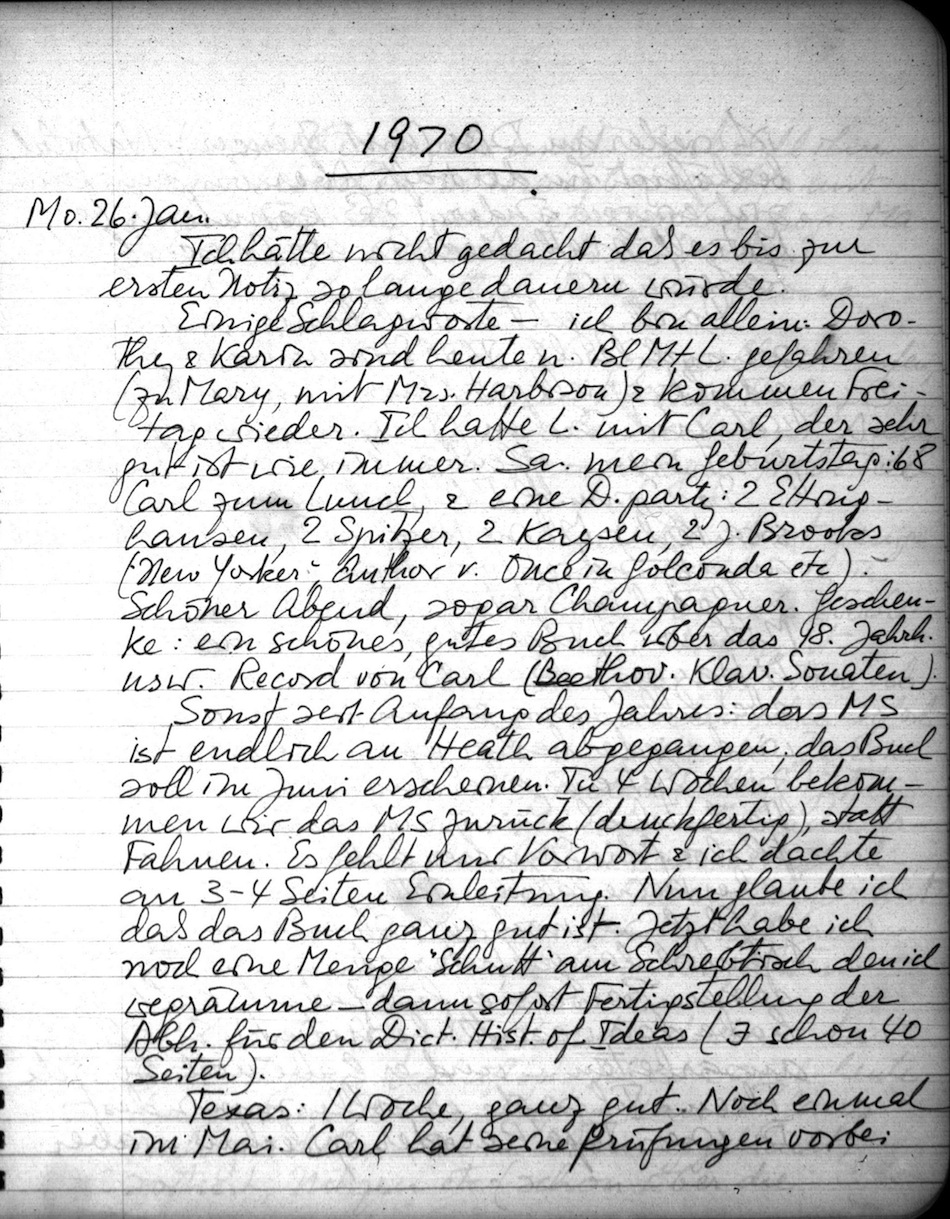 1970
Mo. 26. Jan.
Ich hätte nicht gedacht daß es bis zur
ersten Notiz so lange dauern würde.
Einige Schlagworte – ich bin allein: Doro-
thy & Karin sind heute n. gefahren
(zu Mary, mit Mrs. Harbison) & kommen Frei-
tag wieder. Ich hatte L. mit Carl, der sehr
gut ist wie immer. Sa. mein Geburtstag: 68
Carl zum Lunch, & eine D. party: 2 Etting-
hausen, 2 Spitzer, 2 Kaysen, 2 J. Brooks
(New Yorker; Author v. Once in Golconda etc).
Schöner Abend, sogar Champagner. Geschen-
ke: ein schönes, gutes Buch über das 18. Jahrh.
usw. Record von Carl (Beethov. Klav. Sonaten).
Sonst seit Anfang des Jahres: das MS
ist endlich an Heath abgegangen, das Buch
soll im Juni erscheinen. In 4 Wochen bekom-
men wir das MS zurück (druckfertig), statt
Fahnen. Es fehlt nur Vorwort & ich dachte
an 3-4 Seiten Einleitung. Nun glaube ich
daß das Buch ganz gut ist. Jetzt habe ich
noch eine Menge "Schutt" am Schreibtisch den ich
wegräume – dann sofort Fertigstellung der
Abh. für den Dict. Hist. of Ideas (∃ schon 40
Seiten).
Texas: 1 Woche, ganz gut. Noch einmal
im Mai. Carl hat seine Prüfungen vorbei